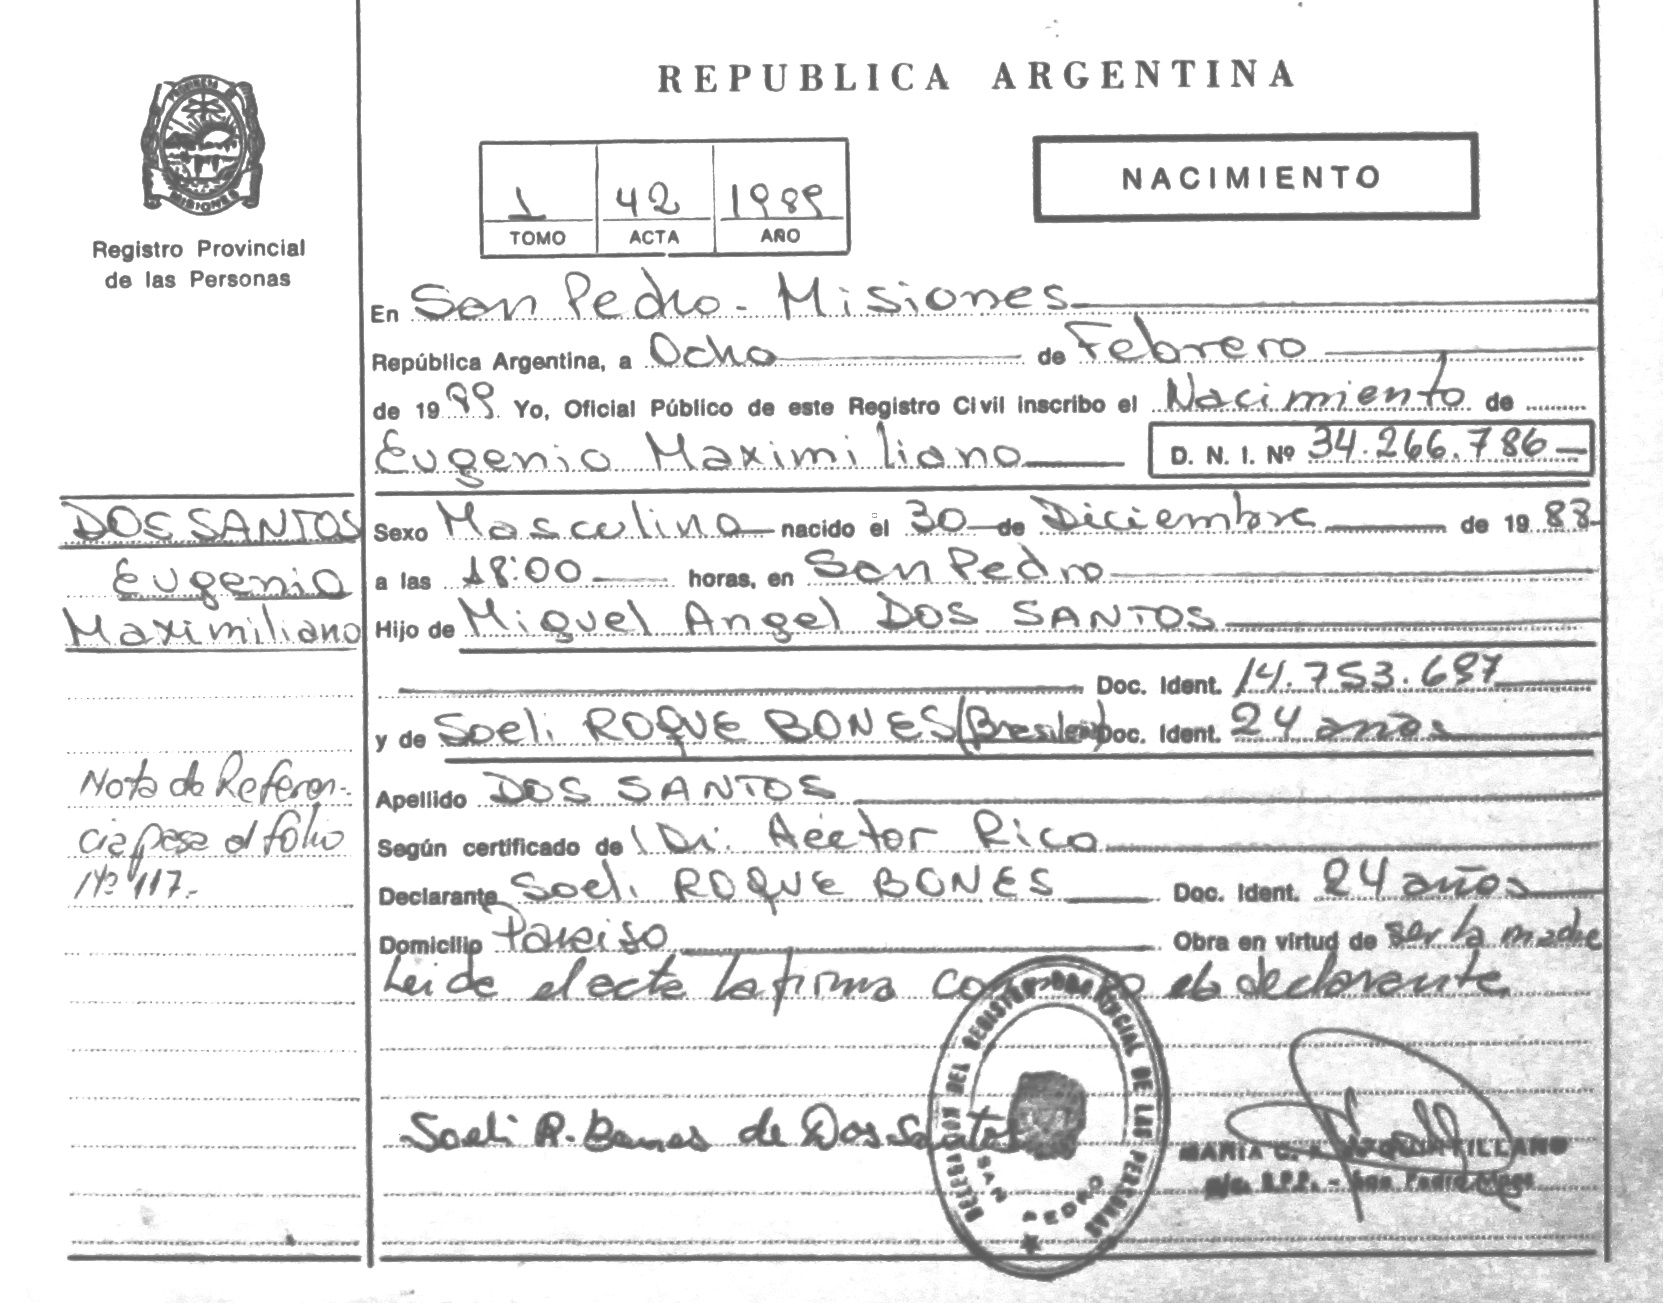 REPUBLICA ARGENTINA
PROVINCIA DE
MISIONES
Registro Provincial
de las Personas
1 42 1989
TOMO ACTA AÑO
NACIMIENTO
En San Pedro - Misiones
República Argentina, a Ocho de Febrero
de 1989. Yo, Oficial Público de este Registro Civil inscribo el Nacimiento de
Eugenio Maximiliano D. N. I. Nº 34.266.786
DOS SANTOS
Eugenio
Maximiliano
Sexo Masculino nacido el 30 de Diciembre de 1988
a las 18:00 horas, en San Pedro
Hijo de Miguel Angel DOS SANTOS
Doc. Ident. 14.753.697
y de Soeli ROQUE BONES (Brasilera) Doc. Ident. 24 años
Apellido DOS SANTOS
Nota de Referen-
cia pasa al folio
Nº 117.-
Según certificado de Dr. Hector Rico
Declarante Soeli ROQUE BONES Doc. Ident. 24 años
Domicilio Paraiso Obra en virtud de ser la madre
Leida el acta la firma conmigo la declarante
Soeli R. Bones de Dos Santos
REGISTRO PROVINCIAL DE LAS PERSONAS
SAN PEDRO
MARIA
San Pedro Mnes